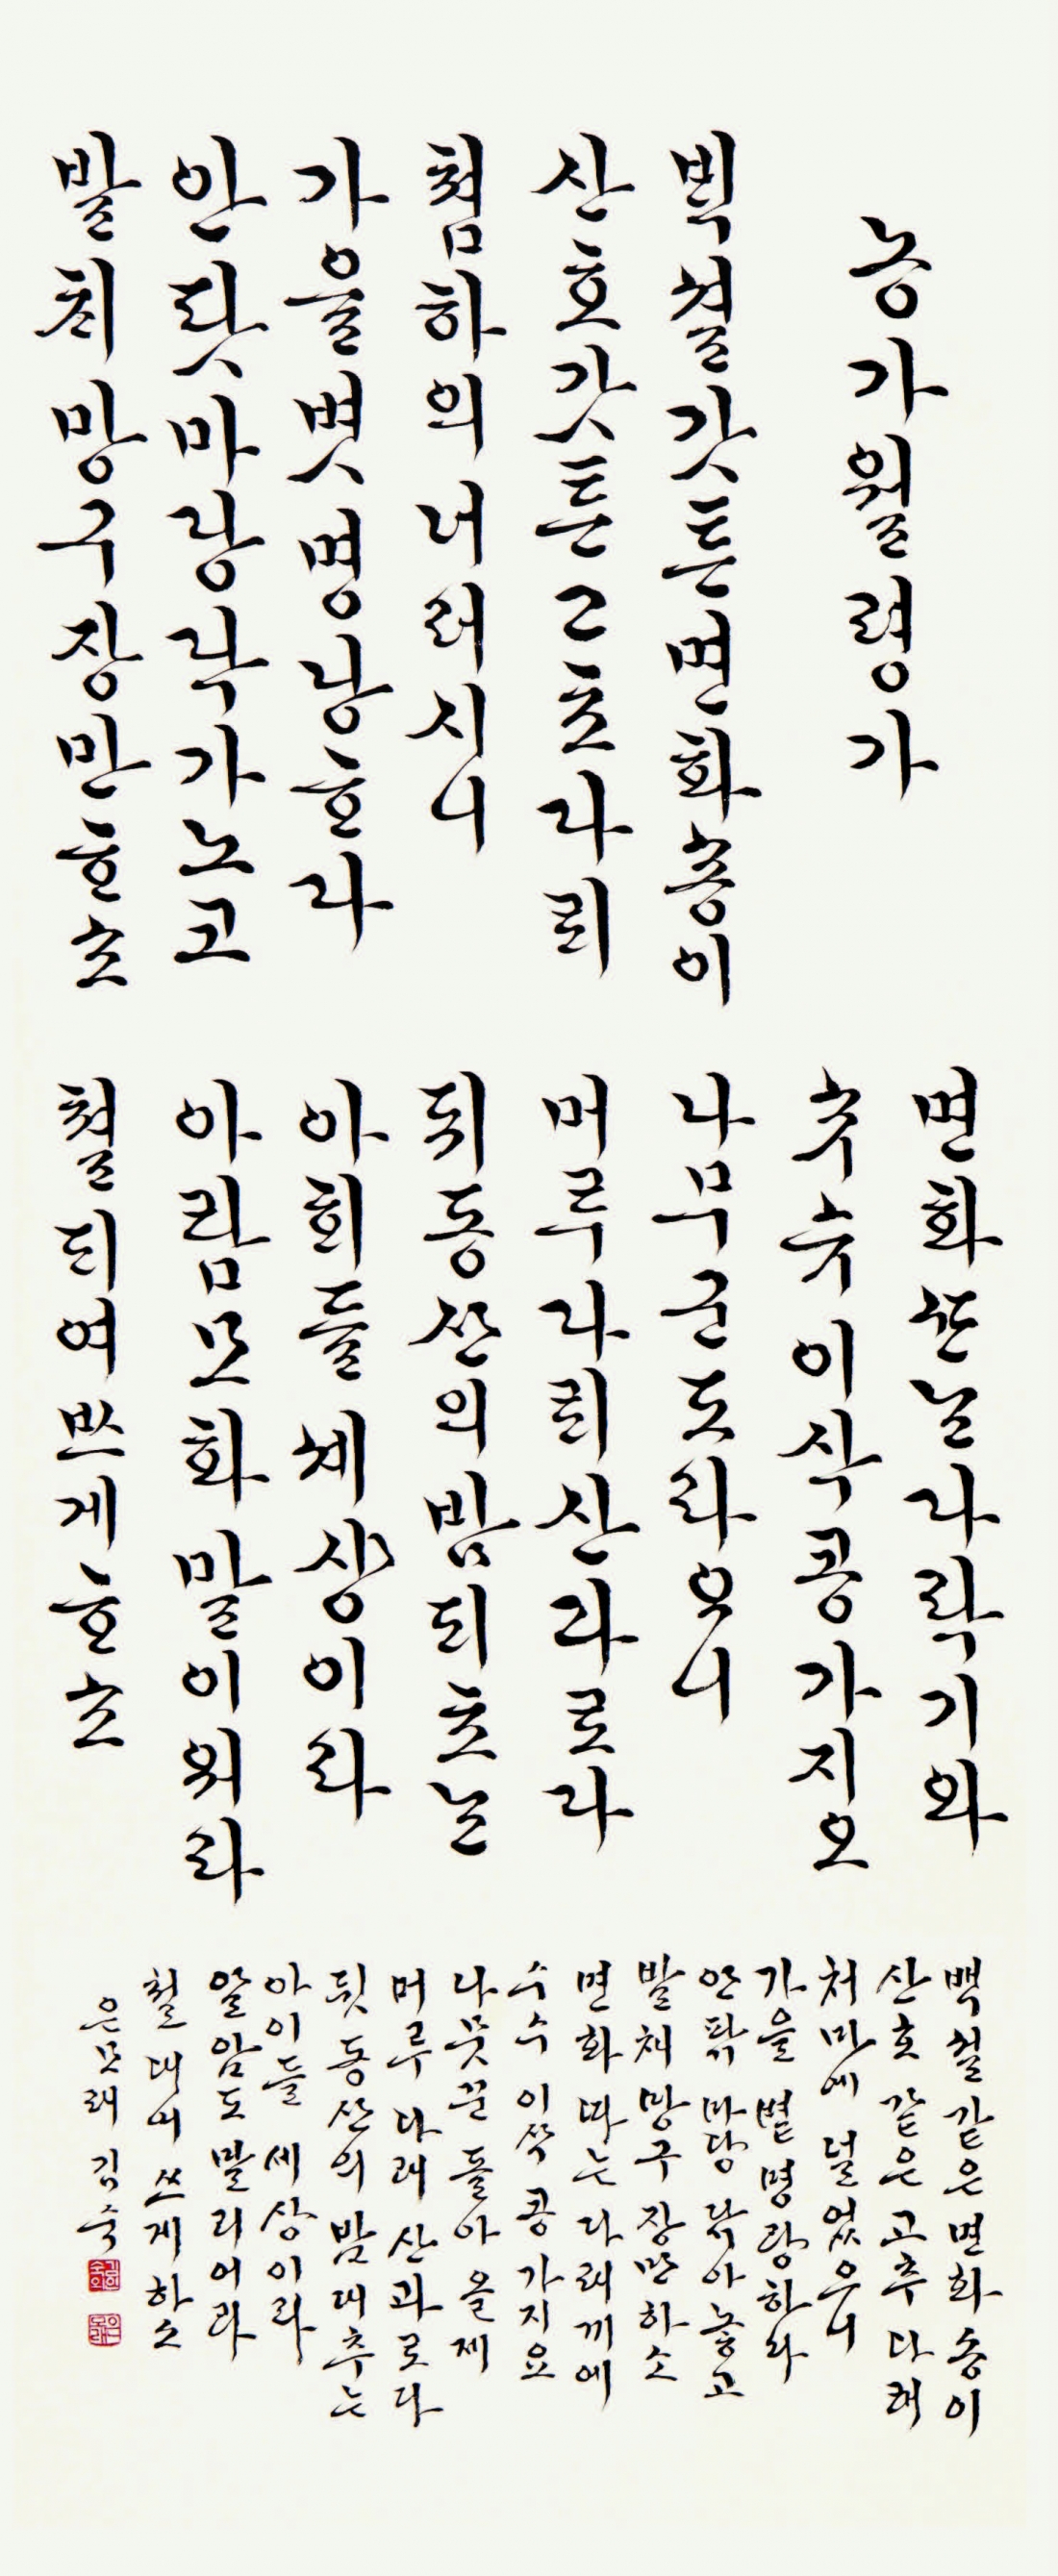 농가월령가
ᄇᆡᆨ셜갓튼면화송이
산호갓튼고초다ᄅᆡ
쳠하의너러시니
가을볏명낭ᄒᆞ다
안팟마당닥가노코
발ᄎᆡ망구장만ᄒᆞ소
면화ᄯᆞᄂᆞᆫ다락기와
수수이삭콩가지오
나무군도라오니
머루다ᄅᆡ산과로다
뒤동산의밤ᄃᆡ초ᄂᆞᆫ
아희들셰상이라
아람모화말이워라
쳘ᄃᆡ여ᄡᅳ게ᄒᆞ소
백설같은 면화송이
산호 같은 고추 다래
처마에 널었으니
가을 볕 명랑하다
안팎 마당 닦아놓고
발채 망구 장만하소
면화 따는 다래끼에
수수 이삭 콩 가지요
나뭇꾼 돌아올제
머루 다래 산과로다
뒷동산의 밤대추는
아이들 세상이라
알암도 말리어라
철 대어 쓰게하소
은모래 김숙